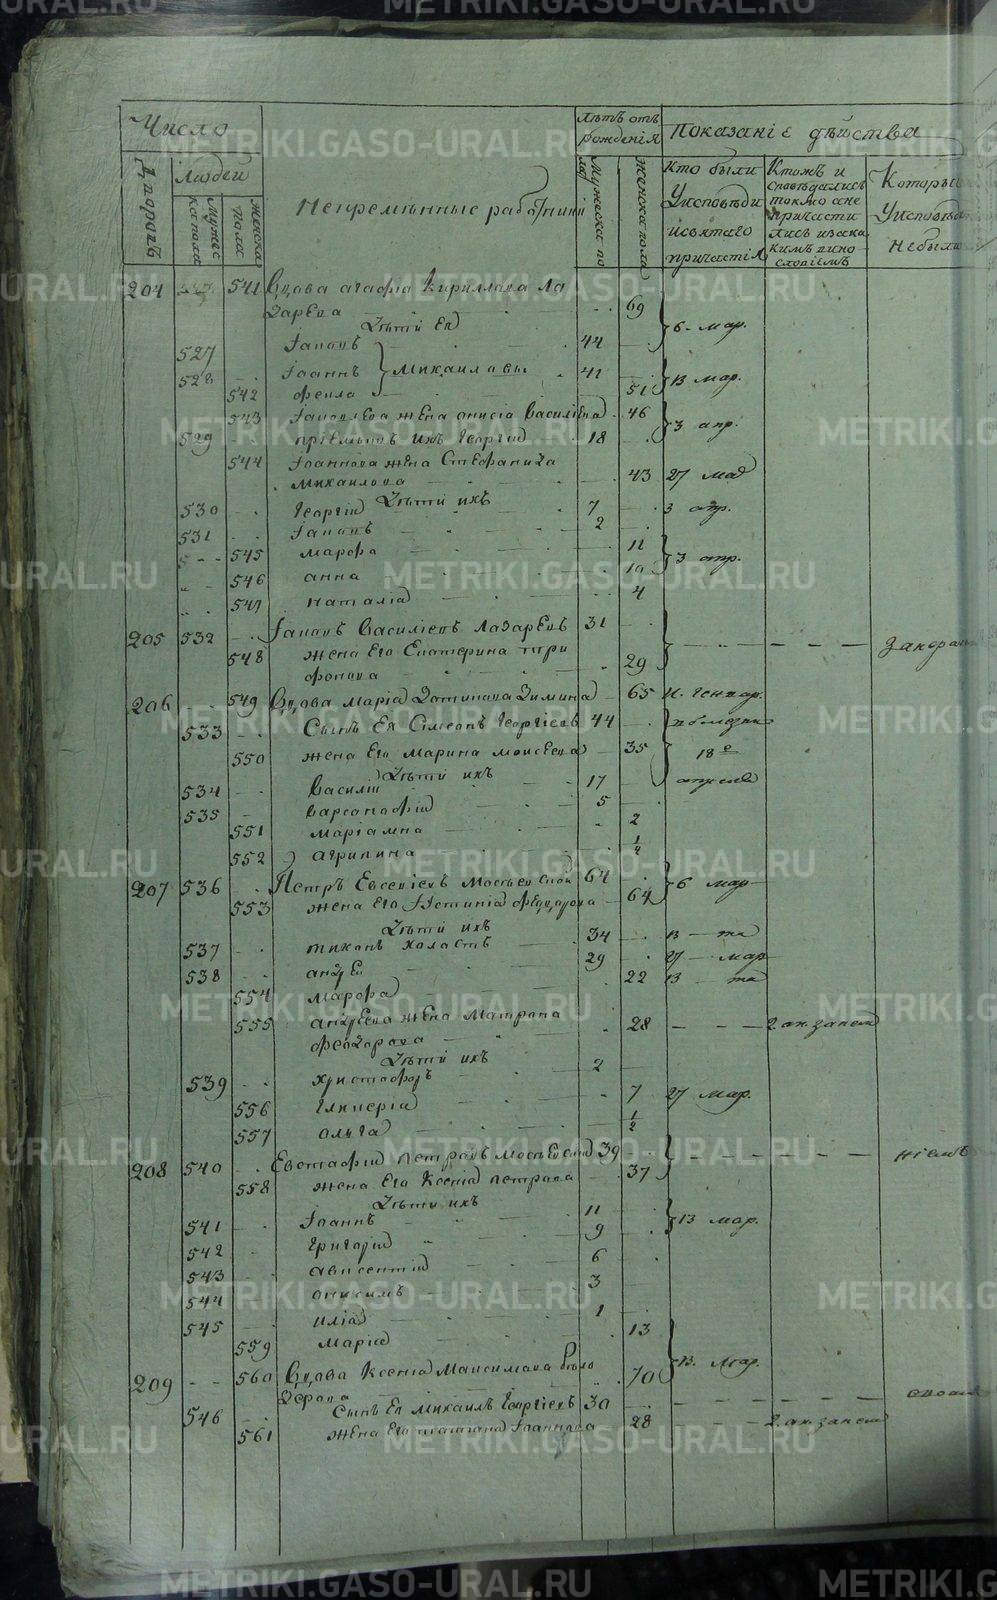 Число
Лѣтъ отъ рожденія
Показаніе дѣйства
Дворовъ
Людей
Мужеска пола
Женска пола
Непремѣнные работники
Мужеска пол
Женска пола
Кто были У исповѣди и святаго причастія
Кто жъ и сповѣдались токмо а не причасти лись и за ка кимъ вино словіемъ
Которые У исповѣди не были
204 541 Вдова Агафія Кириллова Ла
зарева 69
Дѣти ея 6 мар.
527 44
528 Іоаннъ Михаиловы 41
542 Фекла 51 13 мар.
543 жена Анисія Василіева 46
529 пріемышъ ихъ Георгій 18 3 апр.
544 Іоаннова жена Стефанида
Михаилова 43 27 мар
Дѣти ихъ
530 Георгій 7 3 апр.
531 2
545 Марфа 11
546 Анна 10 3 апр.
547 Наталія 4
205 532 Василіевъ Лазаревъ 31
548 жена Его Екатерина Три
фонова 29
206 549 Вдова Марія Зимина 65
533 Сынъ Ея Симеонъ Георгіевъ 44
550 жена Его Марина Моисеева 35 18е
Дѣти ихъ апреля
534 Василій 17
535 Варсонофій 5
551 Маріамна 2
552 Агрипина 1/2
207 536 Петръ Евсевіевъ 64
553 жена Его Іустинія Феодорова 64 6 мар
Дѣти ихъ
537 Тихонъ холостъ 34 13 та
538 Андрей 29 27 мар
554 Марфа 22 13 та
555 Андреева жена Матрона
Феодорова 28
Дѣти ихъ
539 Христофоръ 2
556 Гликерія 7 27 мар.
557 Ольга 1/2
208 540 Евстафій Петровъ 39
558 жена Его Ксенія Петрова 37
Дѣти ихъ
541 Іоаннъ 11
542 Григорій 9 13 мар.
543 Авксентій 6
544 Онисимъ 3
545 Илія 1
559 Марія 13
209 560 Вдова Ксенія Максимова
70 13. мар.
546 Сынъ Ея Михаилъ Георгіевъ 30
561 жена Его Татіана Іоаннова 28
METRIKI.GASO-URAL.RU